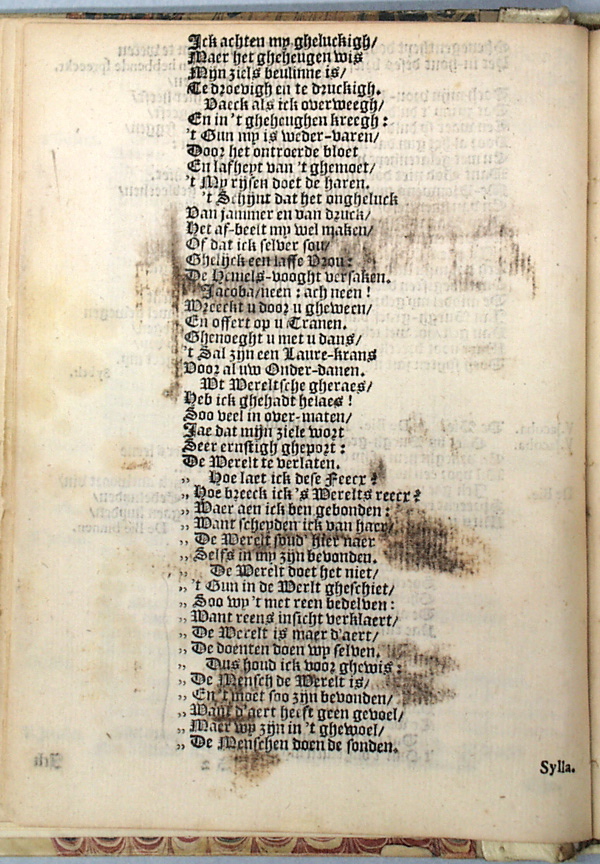 Ick achten my gheluckigh/
Maer het gheheugen wis
Mijn ziels beulinne is/
Te droevigh en te druckigh.
Vaeck als ick overweegh/
En in 't gheheughen kreegh:
't Gun my is weder-varen/
Door het ontroerde bloet
En lafheyt van 't ghemoet/
't My rijsen doet de haren.
't Schijnt dat het ongheluck
Van jammer en van druck/
Het af-beelt my wel maken/
Of dat ick selver sou/
Ghelijck een laffe Vrou:
De Hemels-vooght versaken.
Jacoba/neen: ach neen!
Wreeckt u door u gheween/
En offert op u Tranen.
Ghenoeght u met u dans/
't Sal zijn een Laure-krans
Voor al uw Onder-danen.
Wt Wereltsche gheraes/
Heb ick ghehadt helaes!
Soo veel in over-maten/
Jae dat mijn ziele wort
Seer ernstigh gheport:
De Werelt te verlaten.
„ Hoe laet ick dese Feecx?
„ Hoe breeck ick 's Werelts reecx?
„ Waer aen ick ben gebonden:
„ Want scheyden ick van haer/
„ De Werelt soud' hier naer
„ Selfs in my zijn bevonden.
„ De Werelt doet het niet/
„ 't Gun in de Werlt gheschiet/
„ Soo wy 't met reen bedelven:
„ Want reens insicht verklaert/
„ De Werelt is maer d'aert/
„ De doenten doen wy selven.
„ Dus houd ick voor ghewis:
„ De Mensch de Werelt is/
„ En 't moet soo zijn bevonden/
„ Want d'aert heeft geen gevoel/
„ Maer wy zijn in 't ghewoel/
„ De Menschen doen de sonden.
Sylla.